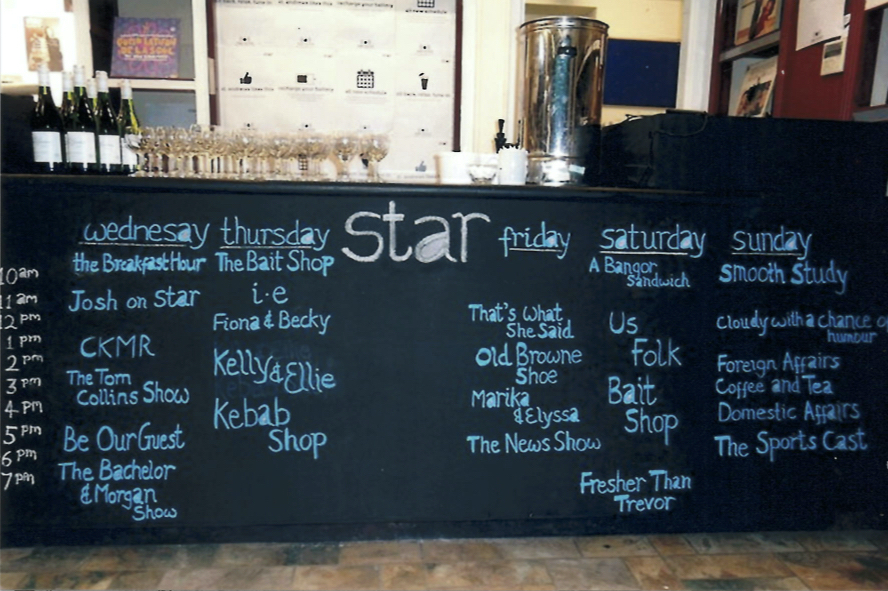 wednesay
the Breakfast Hour
Josh on star
CKMR
The Tom
Collins Show
Be Our Guest
The Bachelor
& Morgan
Show
thursday
The Bait Shop
i.e
Fiona & Becky
Kelly & Ellie
Kebab
Shop
star
friday
That's What
She Said
Old Browne
Shoe
Marika
& Elyssa
The News Show
saturday
A Bangor
Sandwich
Us
Folk
Bait
Shop
Fresher Than
Trevor
sunday
Smooth Study
Cloudy with a chance
humour
Foreign Affairs
Coffee and Tea
Domestic Affairs
The Sports Cast
10am
11am
12 pm
1 pm
2 pm
3 pm
4 pm
5 pm
6 pm
7pm